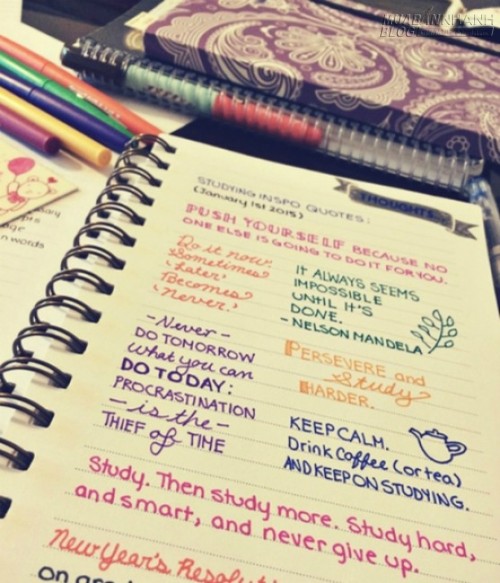 STUDYING INSPO QUOTES:
(January 1st 2015)
THOUGHTS
PUSH YOURSELF BECAUSE NO
ONE ELSE IS GOING TO DO IT FOR YOU.
Do it now.
Sometimes
'Later'
Becomes
'never.'
IT ALWAYS SEEMS
IMPOSSIBLE
UNTIL IT'S
DONE.
- NELSON MANDELA
- Never -
DO TOMORROW
what you can
DO TODAY:
PROCRASTINATION
- is the -
THIEF of TIME
PERSEVERE and
Study
HARDER.
KEEP CALM.
Drink Coffee (or tea)
AND KEEP ON STUDYING.
Study. Then study more. Study hard,
and smart, and never give up.
New Year's
on
n words
BLOG